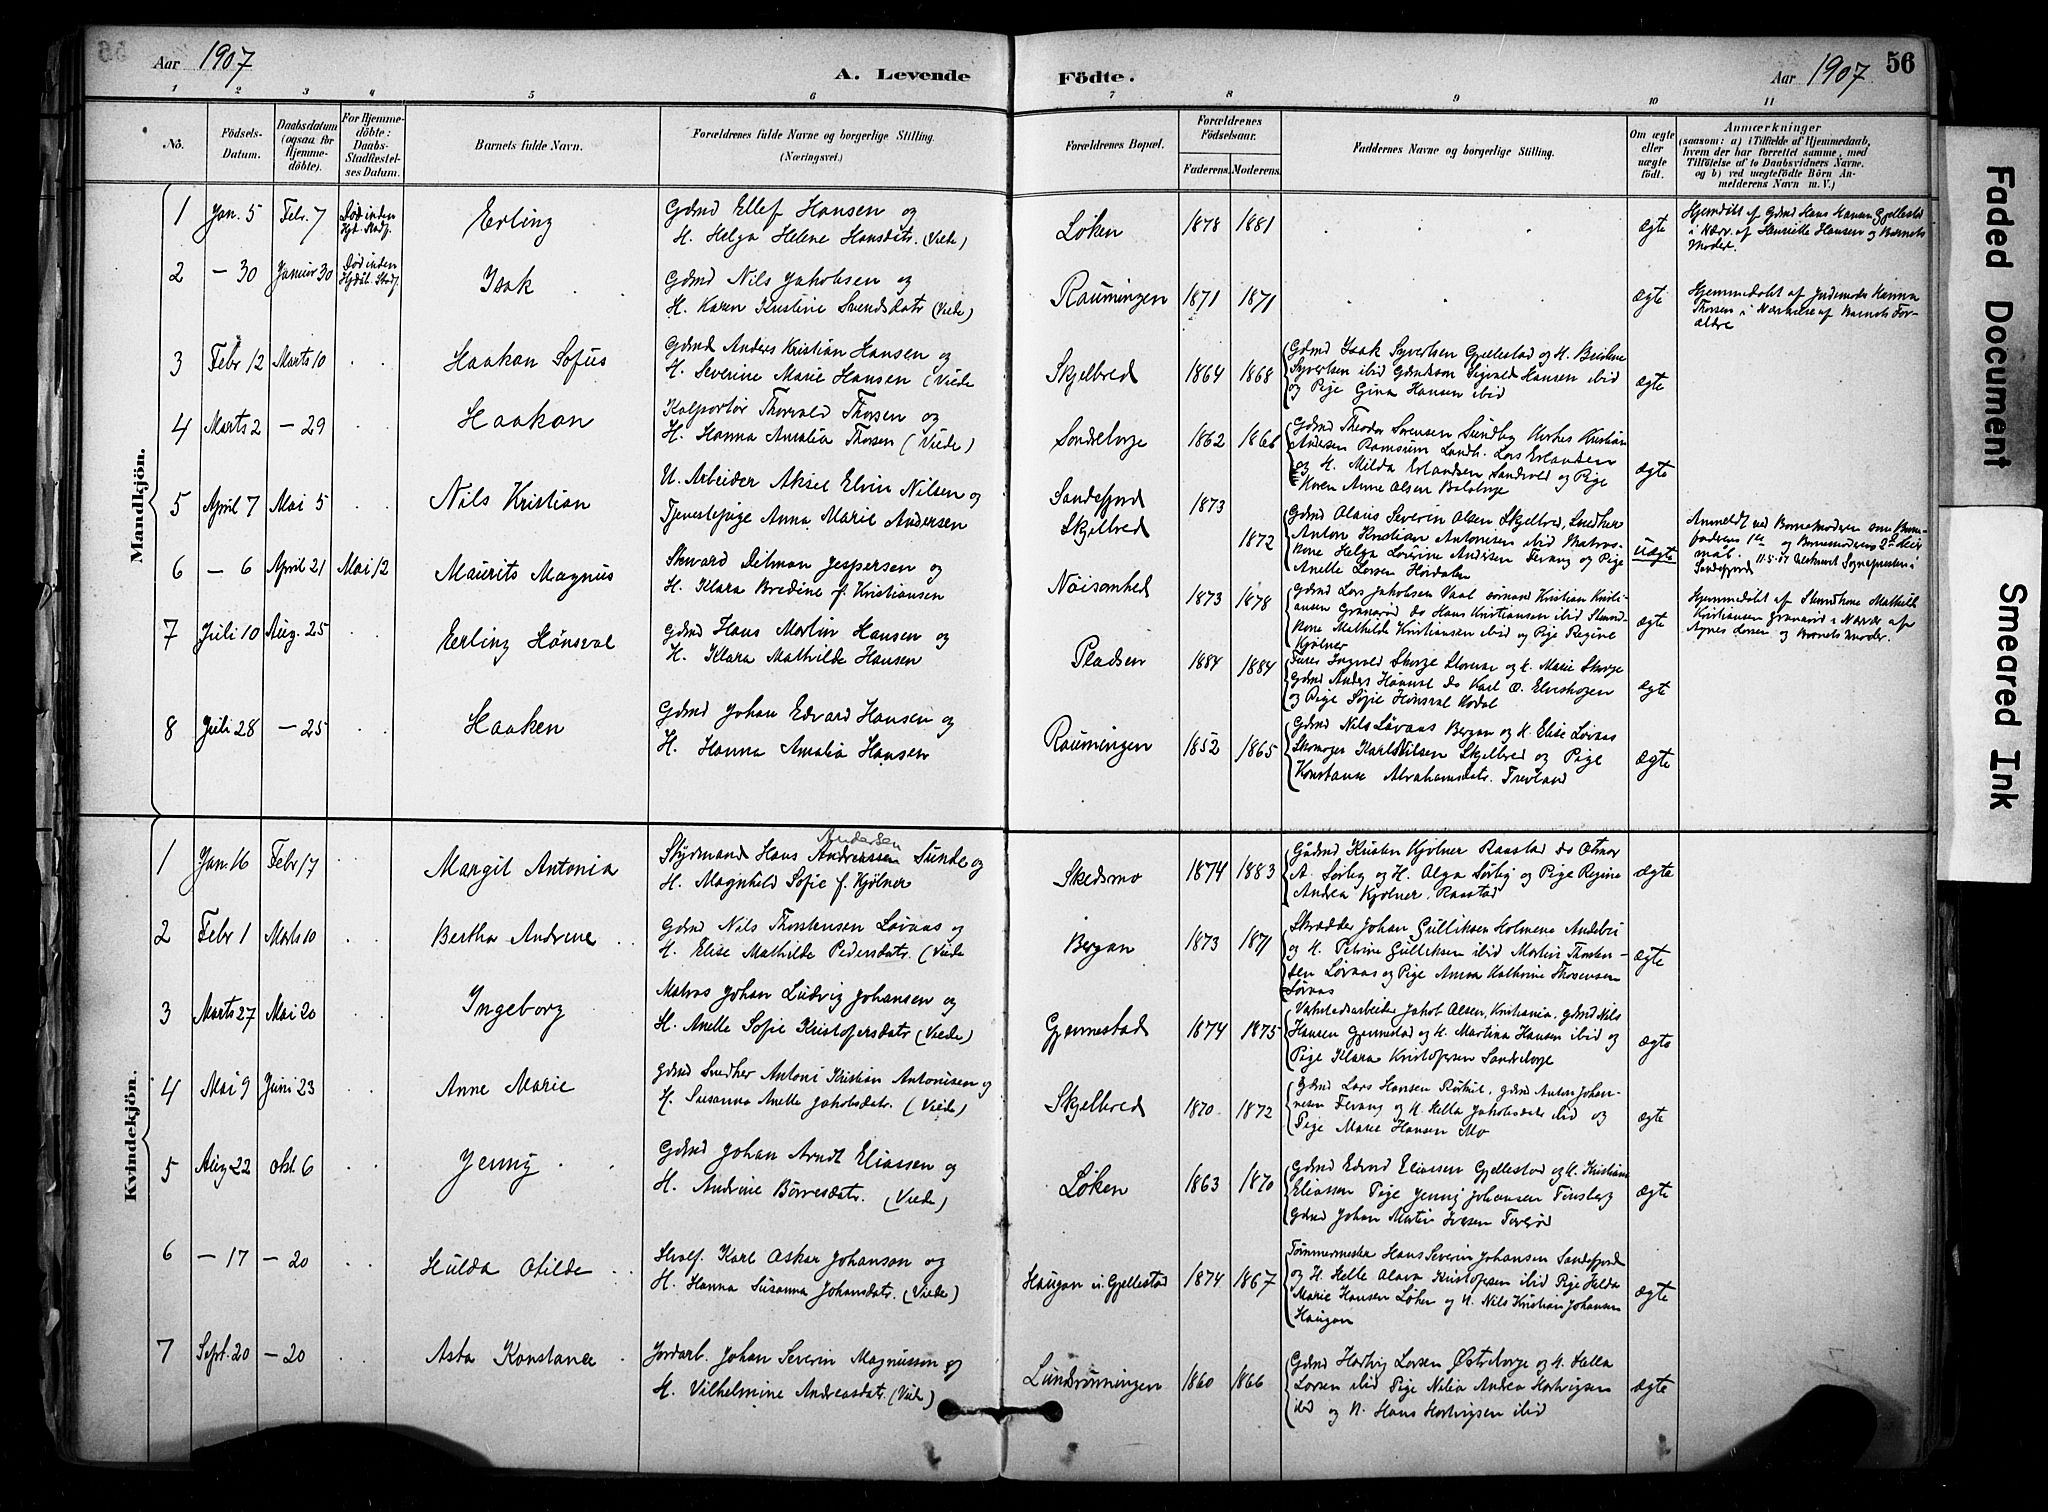 Aar 1907
A. Levende Födte.
Aar 1907
56
1 2 3 4 5 6 7 8 9 10 11
No.
Födsels-Datum.
Daabsdatum (ogsaa for Hjemme-döbte).
For Hjemme-döbte: Daabs-Stadfæstel-ses Datum.
Barnets fulde Navn.
Forældrenes fulde Navne og borgerlige Stilling. (Næringsvei.)
Forældrenes Bopæl.
Forældrenes Födselsaar.
Faderens. Moderens.
Faddernes Navne og borgerlige Stilling.
Om ægte eller uægte födt.
Anmærkninger
(saasom: a) i Tilfælde af Hjemmedaab,
hvem der har forrettet samme, med
Tilföielse af to Daabsvidners Navne.
og b) ved uægtefödte Börn An-
melderens Navn m. V.)
Mandkjön.
1 Jan. 5 Febr. 7 Död inden Erling
Gdmd Ellef Hansen og
H. Helga Helene Hansdatr. (Viede)
Løken 1878 1881 ægte
Hjemdöbt af Gdmd Hans Hansen Gjellestad
i Nærv. af Henriette Hansen og Barnets
Moder.
2 — 30 Januar 30 Död inden Isak
Gdmd Nils Jakobsen og
H. Karen Kristine Svendsdatr (Viede)
Raumingen 1871 1871 ægte
Hjemmedøbt af Jordmoder Hanna
Thorsen i Nærværelse af Barnets For-
ældre
3 Febr 12 Marts 10 Haakon Sofus
Gdmd Anders Kristian Hansen og
H. Severine Marie Hansen (Viede
Skjelbred 1864 1868
Gdmd Isak Syvertsen Gjellestad og H.
Syvertsen ibid Gdmdsøn Sigvald Hansen ibid
og Pige Gina Hansen ibid
ægte
4 Marts 2 — 29 Haakon
Kolportør Thorvald Thorsen og
H. Hanna Amalia Thorsen (Viede)
Søndetorge 1862 1866
Gdmd Theodor Sørensen Sundby Kristian
Andersen Ramsum Landh. Lars Erlandsen
og H. Milda Erlandsen Sandvold og Pige
Karen Anne Olsen
ægte
5 April 7 Mai 5 Nils Kristian
U. Arbeider Aksel Elvin Nilsen og
Tjenestepige Anna Marie Andersen
Sandefjord
Skjelbred
1873
1872
Gdmd Olaus Severin Olsen Skjelbred, Snedker
Anton Kristian Antonisen ibid Matros-
kone Helga Lovine Andersen Fevang og Pige
Anette Larsen Hørdalen
Uægte
Anmeldt ved Barnemoderen som Barne-
fadrens 1ste og Barnemoderens 2det Leir
maal.
6 — 6 April 21 Mai 12 Maurits Magnus
Skrvard Ditman Jespersen og
H. Klara Bredine f. Kristiansen
Nøisomhed 1873 1878
Gdmd Lars Jakobsen Vaal Sømand Kristian Kristi-
ansen Granerød do Hans Kristiansen ibid
kone Mathilde Kristiansen ibid og Pige Regine
Kjølner
ægte
Hjemmedøbt af Mathilde
Kristiansen Granerød i Nærvær af
Agnes Larsen og Barnets Moder.
7 Juli 10 Aug. 25 Erling Hønsval
Gdmd Hans Martin Hansen og
H. Klara Mathilde Hansen
Pladsen 1884 1884
Ingvald Skorge og H. Marie Skorge
Gdmd Anders Hønsval do Karl O. Elveskogen
og Pige Sofie Hønsval Kodal
ægte
8 Juli 28 — 25 Haaken
Gdmd Johan Edvard Hansen og
H. Hanna Amalia Hansen
Raumingen 1852 1865
Gdmd Nils Løvaas Bergan og H. Elise Løvaas
Skomager Karl Nilsen Skjelbred og Pige
Konstanse Abrahamsdatr. Trevland
ægte
Kvindekjön.
1 Jan. 16 Febr 17 Margit Antonia
Andersen
Styrmand Hans Andreassen Sunde og
H. Magnhild Sofie f. Kjølner
Skedsmo 1874 1883
Gdmd Kristen Kjølner Raastad do Otmar
A. Sørby og H. Olga Sørby og Pige Regine
Andrea Kjølner, Raastad
ægte
2 Febr 1 Marts 10 Bertha Andrine
Gdmd Nils Thorstensen Løvaas og
H. Elise Mathilde Pedersdatr. (Viede
Bergan 1873 1871
Skrædder Johan Gulliksen Holmene Andebu
og H. Petrine Gulliksen ibid Martin Thorsten-
sen Løvaas og Pige Anna Kathrine Thorsensen
Løvaas
ægte
3 Marts 27 Mai 20 Ingeborg
Matros Johan Ludvig Johansen og
H. Anette Sofie Kristofersdatr (Viede)
Gjermestad 1874 1875
Værkstedsarbeider Jakob Olsen, Kristiania, gdmd Nils
Hansen Gjermestad og H. Martina Hansen ibid og
Pige Klara Kristofersen Søndetorge
ægte
4 Mai 9 Juni 23 Anne Marie
Gdmd Snedker Antoni Kristian Antonisen og
H. Susanna Anette Jakobsdatr. (Viede)
Skjelbred 1870 1872
Gdmd Lars Hansen gdmd Anton Johan-
nesen Fevang og H. Hella Jakobsdatr ibid og
Pige Marie Hansen Mo
ægte
5 Aug 22 Okt. 6 Jenny
Gdmd Johan Arndt Eliassen og
H. Andrine Börresdatr. (Viede)
Løken 1863 1870
Gdmd Edvard Eliassen Gjellestad og H. Kristiane
Eliassen Pige Jenny Johansen Tønsberg
Gdmd Johan Martin
ægte
6 — 17 — 20 Hulda Otilde
Karl Oskar Johanson og
H. Hanna Susanna Johansdatr. (Viede)
Haugan u. Gjellestad 1874 1867
Tømmermester Hans Severin Johansen Sandefjord
og H. Helle Olava Kristofersen ibid Pige Helda
Marie Hansen Løken og U. Nils Kristian Johansen
Haugan
ægte
7 Sept. 20 — 20 Asta Konstance
Jordarb. Johan Severin Magnussen og
H. Vilhelmine Andreasdatr. (Viede)
Lundrønningen 1860 1866
Gdmd Hartvig Larsen Østretorge og H. Hella
Larsen ibid Pige Nilia Andrea Hartvigsen
ibid og U. Hans Hartvigsen ibid
ægte
Faded Document
Smeared Ink